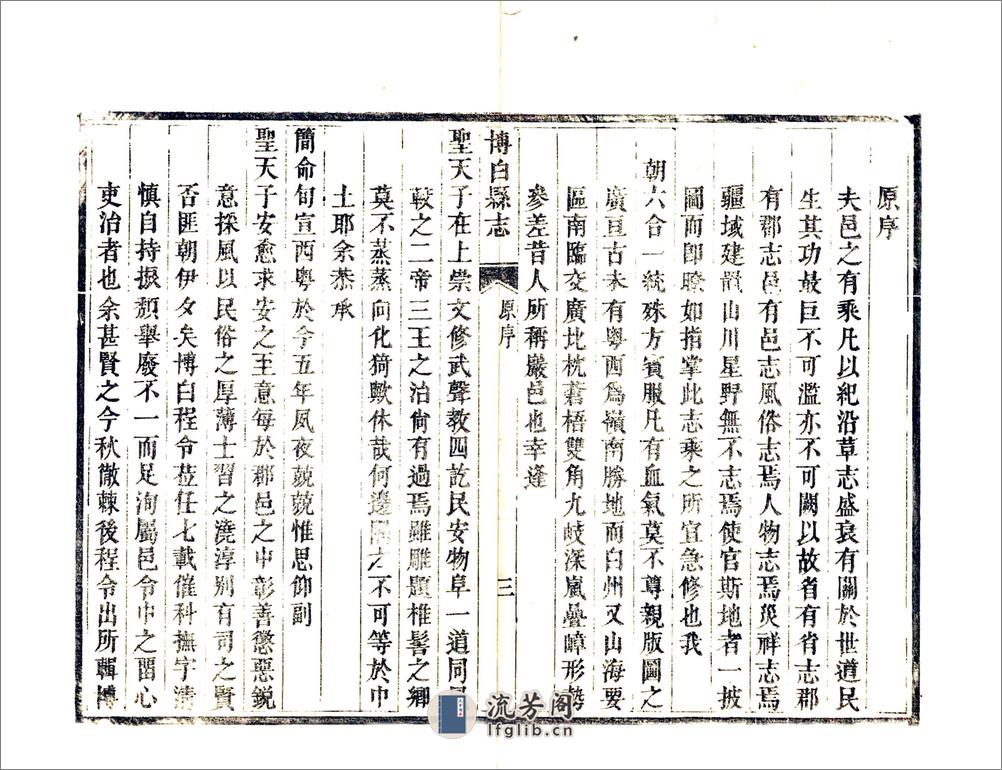 原序
夫邑之有乘凡以紀沿革志盛衰有關於世道民
生其功最巨不可濫亦不可闕以故省有省志郡
有郡志邑有邑志風俗志焉人物志焉災祥志焉
疆域建置山川星野無不志焉使官斯地者一披
圖而即瞭如指掌此志乘之所宜急修也我
朝六合一統殊方賓服凡有血氣莫不尊親版圖之
廣亘古未有粵西爲嶺南勝地而白州又山海要
區南臨交廣北枕蒼梧雙角九岐深嵐疊嶂形勢
參差昔人所稱巖邑也幸逢
博白縣志
原序
三
聖天子在上崇文修武聲教四訖民安物阜一道同風
較之二帝三王之治尙有過焉雖雕題椎髻之鄉
莫不蒸蒸向化猗歟休哉何邊隅之不可等於中
土耶余恭承
簡命旬宣西粵於今五年夙夜兢兢惟思仰副
聖天子安愈求安之至意每於郡邑之中彰善懲惡銳
意採風以民俗之厚薄士習之澆淳别有司之賢
否匪朝伊夕矣博白程令莅任七載催科撫字清
愼自持振頽舉廢不一而足洵屬邑令中之留心
吏治者也余甚賢之今秋徹棘後程令出所輯博
流芳阁
lfglib.cn